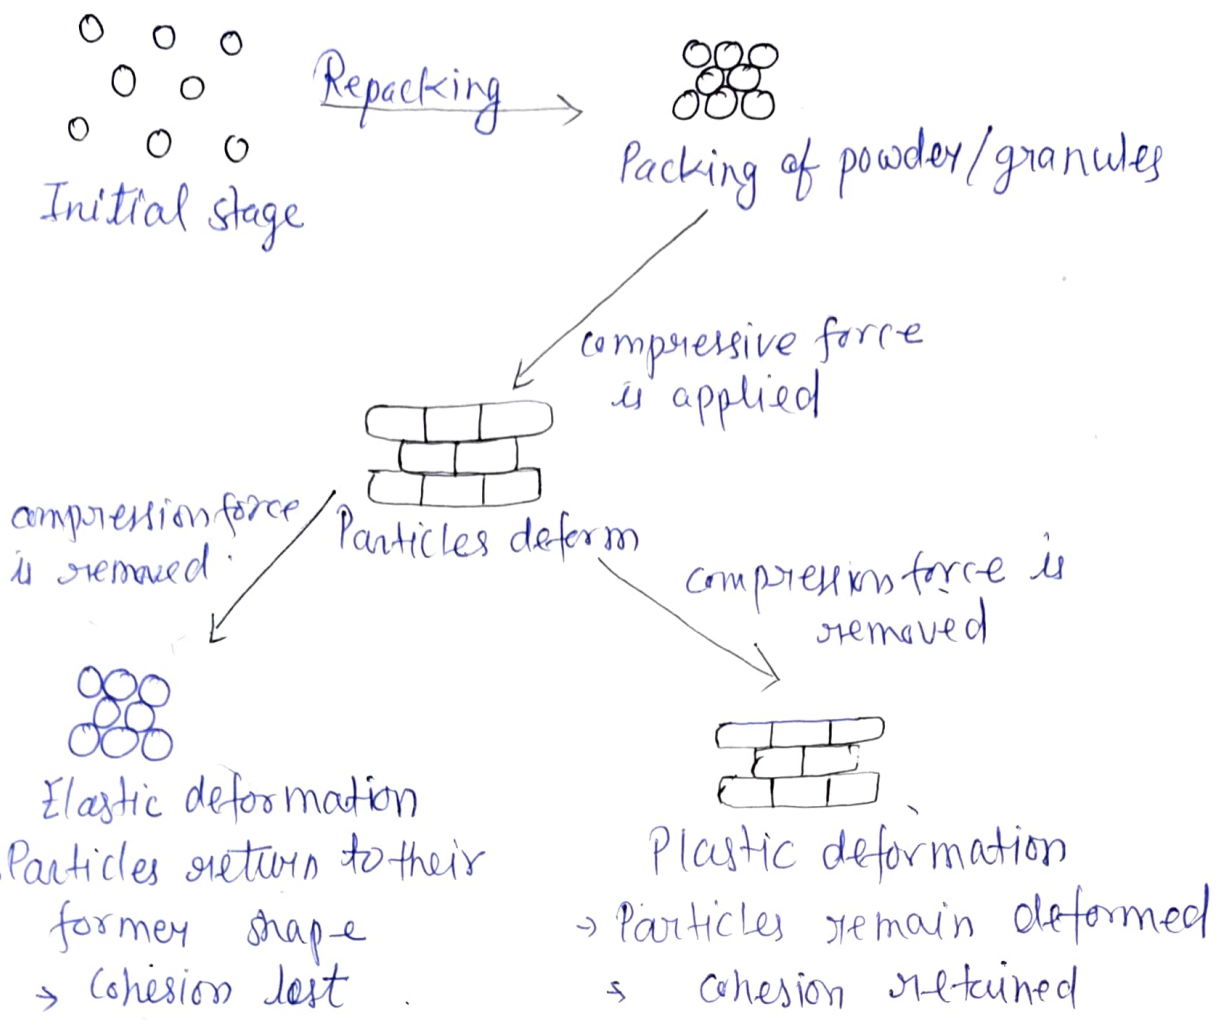 Repacking
Initial stage
Packing of powder/granules
compressive force
is applied
compression force
is removed
Particles deform
compression force is
removed
Elastic deformation
Particles return to their
former shape
→ Cohesion lost
Plastic deformation
→ Particles remain deformed
→ cohesion retained